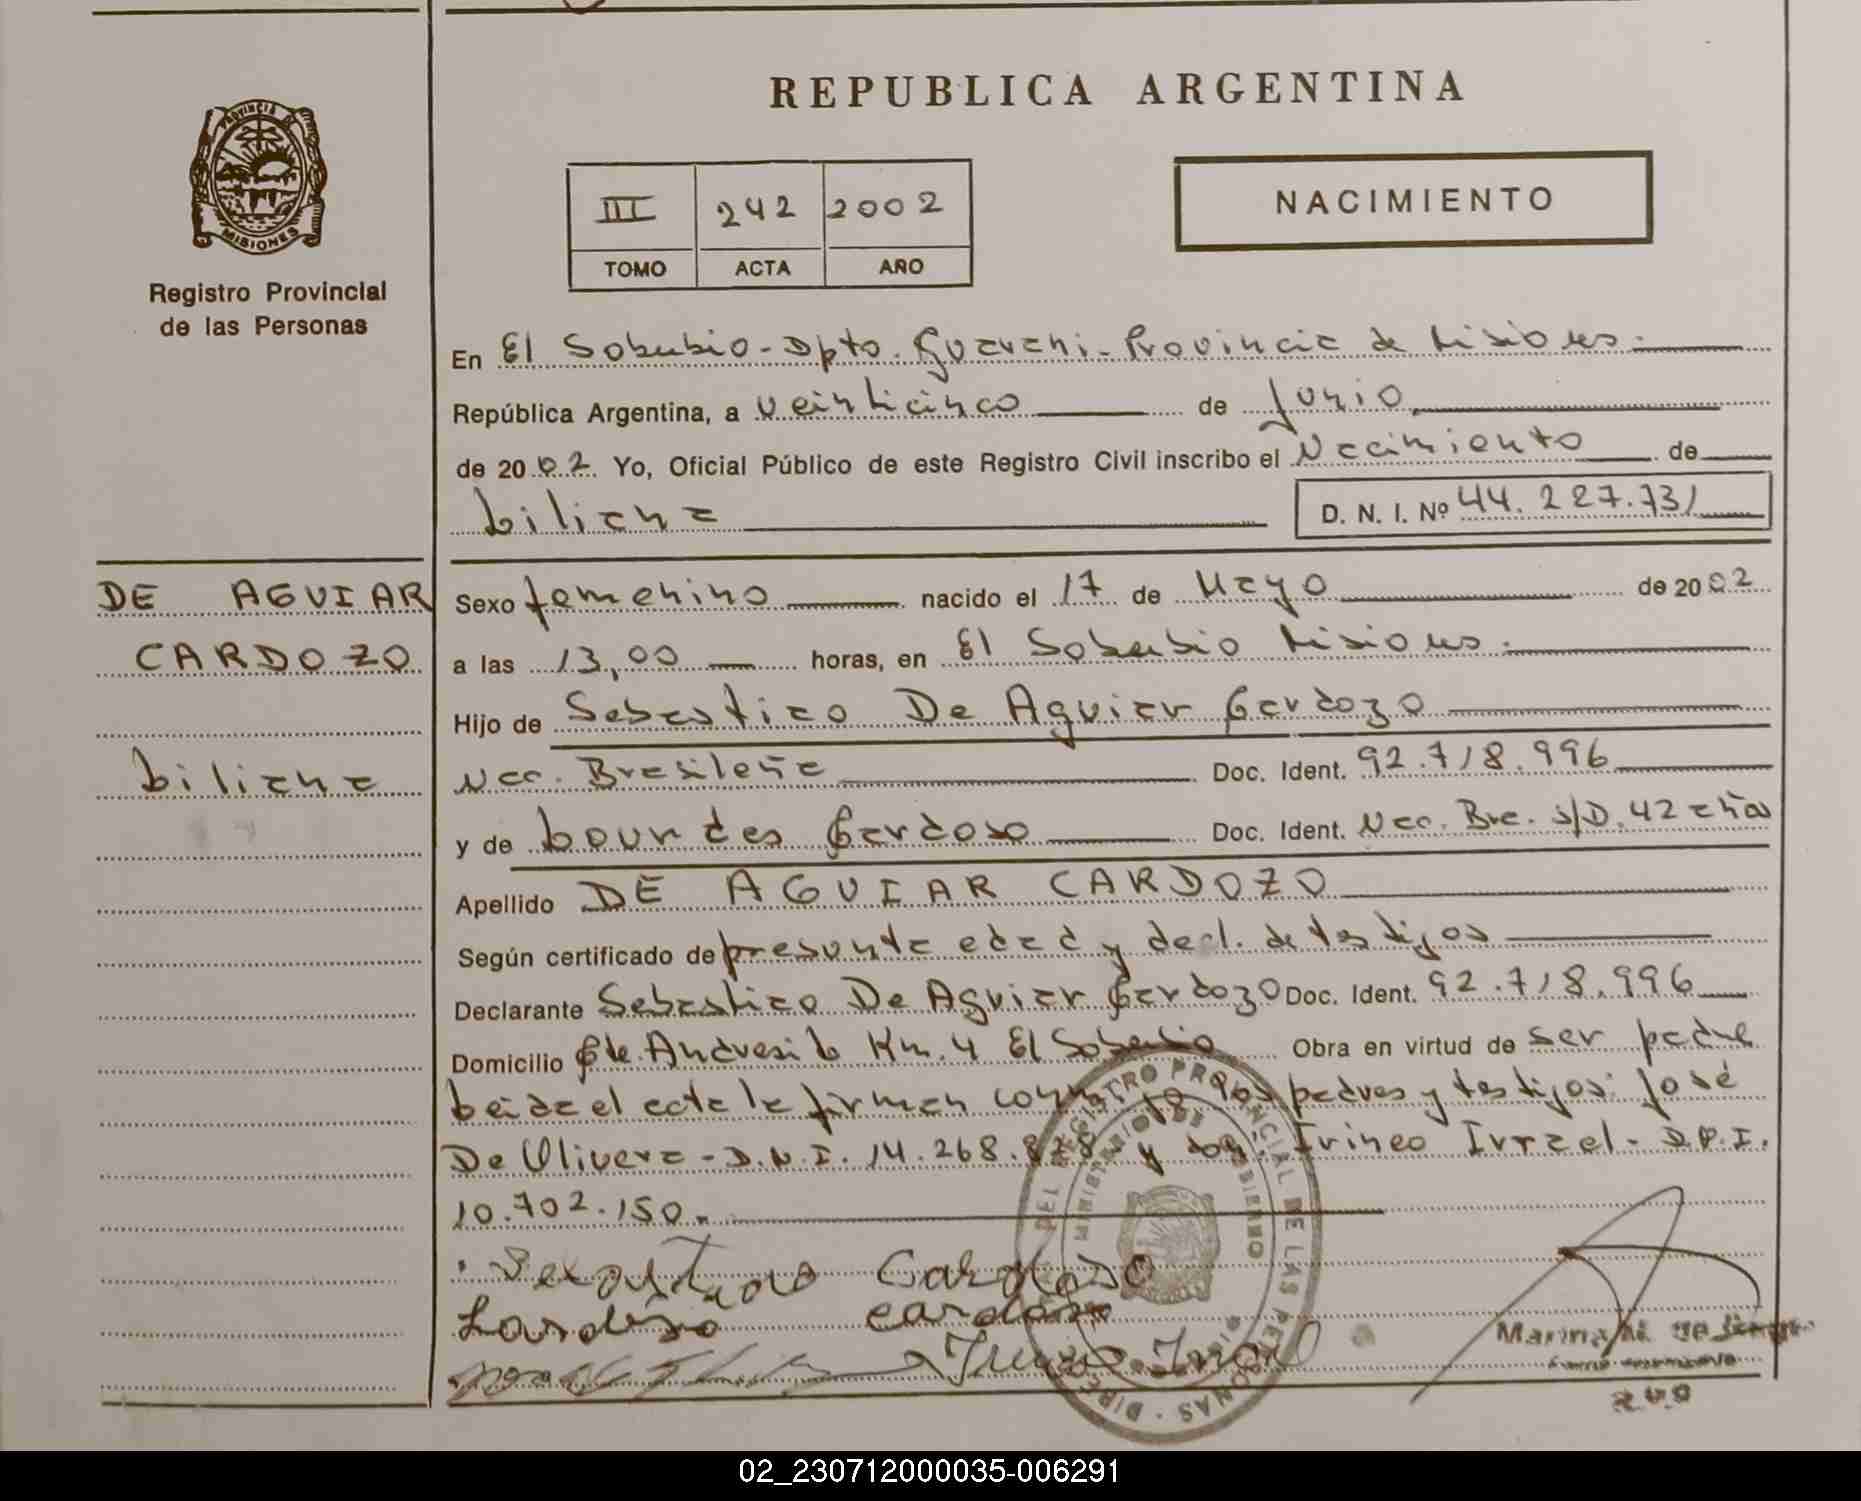 PROVINCIA DE
MISIONES
Registro Provincial
de las Personas
DE AGUIAR
CARDOZO
Liliana
REPUBLICA ARGENTINA
III 242 2002
TOMO ACTA AÑO
NACIMIENTO
En El Soberbio - Dpto. Guarani - Provincia de Misiones.
República Argentina, a veinticinco de Junio
de 2002. Yo, Oficial Público de este Registro Civil inscribo el Nacimiento de
Liliana D. N. I. Nº 44.227.731
Sexo femenino nacido el 17 de Mayo de 2002
a las 13,00 horas, en El Soberbio Misiones.
Hijo de Sebastiao De Aguiar Cardozo
Nac. Brasileña Doc. Ident. 92.718.996
y de Lourdes Cardoso Doc. Ident. Nac. Bra. s/D. 42 años
Apellido DE AGUIAR CARDOZO
Según certificado de presunta edad y decl. de testigos
Declarante Sebastiao De Aguiar Cardozo Doc. Ident. 92.718.996
Domicilio Cte. Andresito Km. 4 El Soberbio Obra en virtud de ser padre
Leída el acta la firman conmigo los padres y testigos: José
De Olivera - D.N.I. 14.268.878 y don: Irineo Irrael - D.N.I.
10.702.150.
Cardoso
cardoso
DIRECCION DEL REGISTRO PROVINCIAL DE LAS PERSONAS
MINISTERIO DE GOBIERNO
02_230712000035-006291